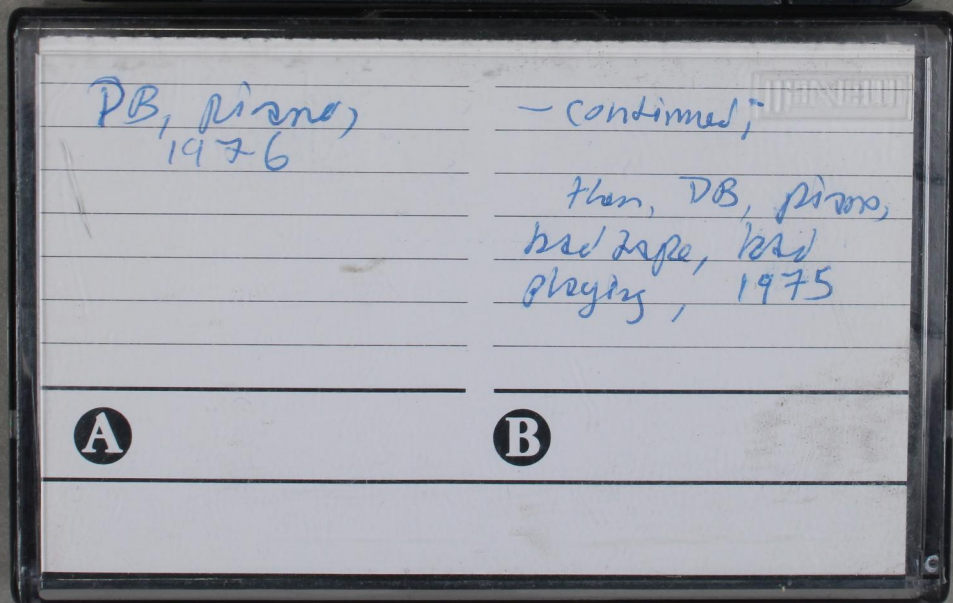 DB, piano,
1976
A
— continued;
then, DB, piano,
bad tape, bad
playing, 1975
B